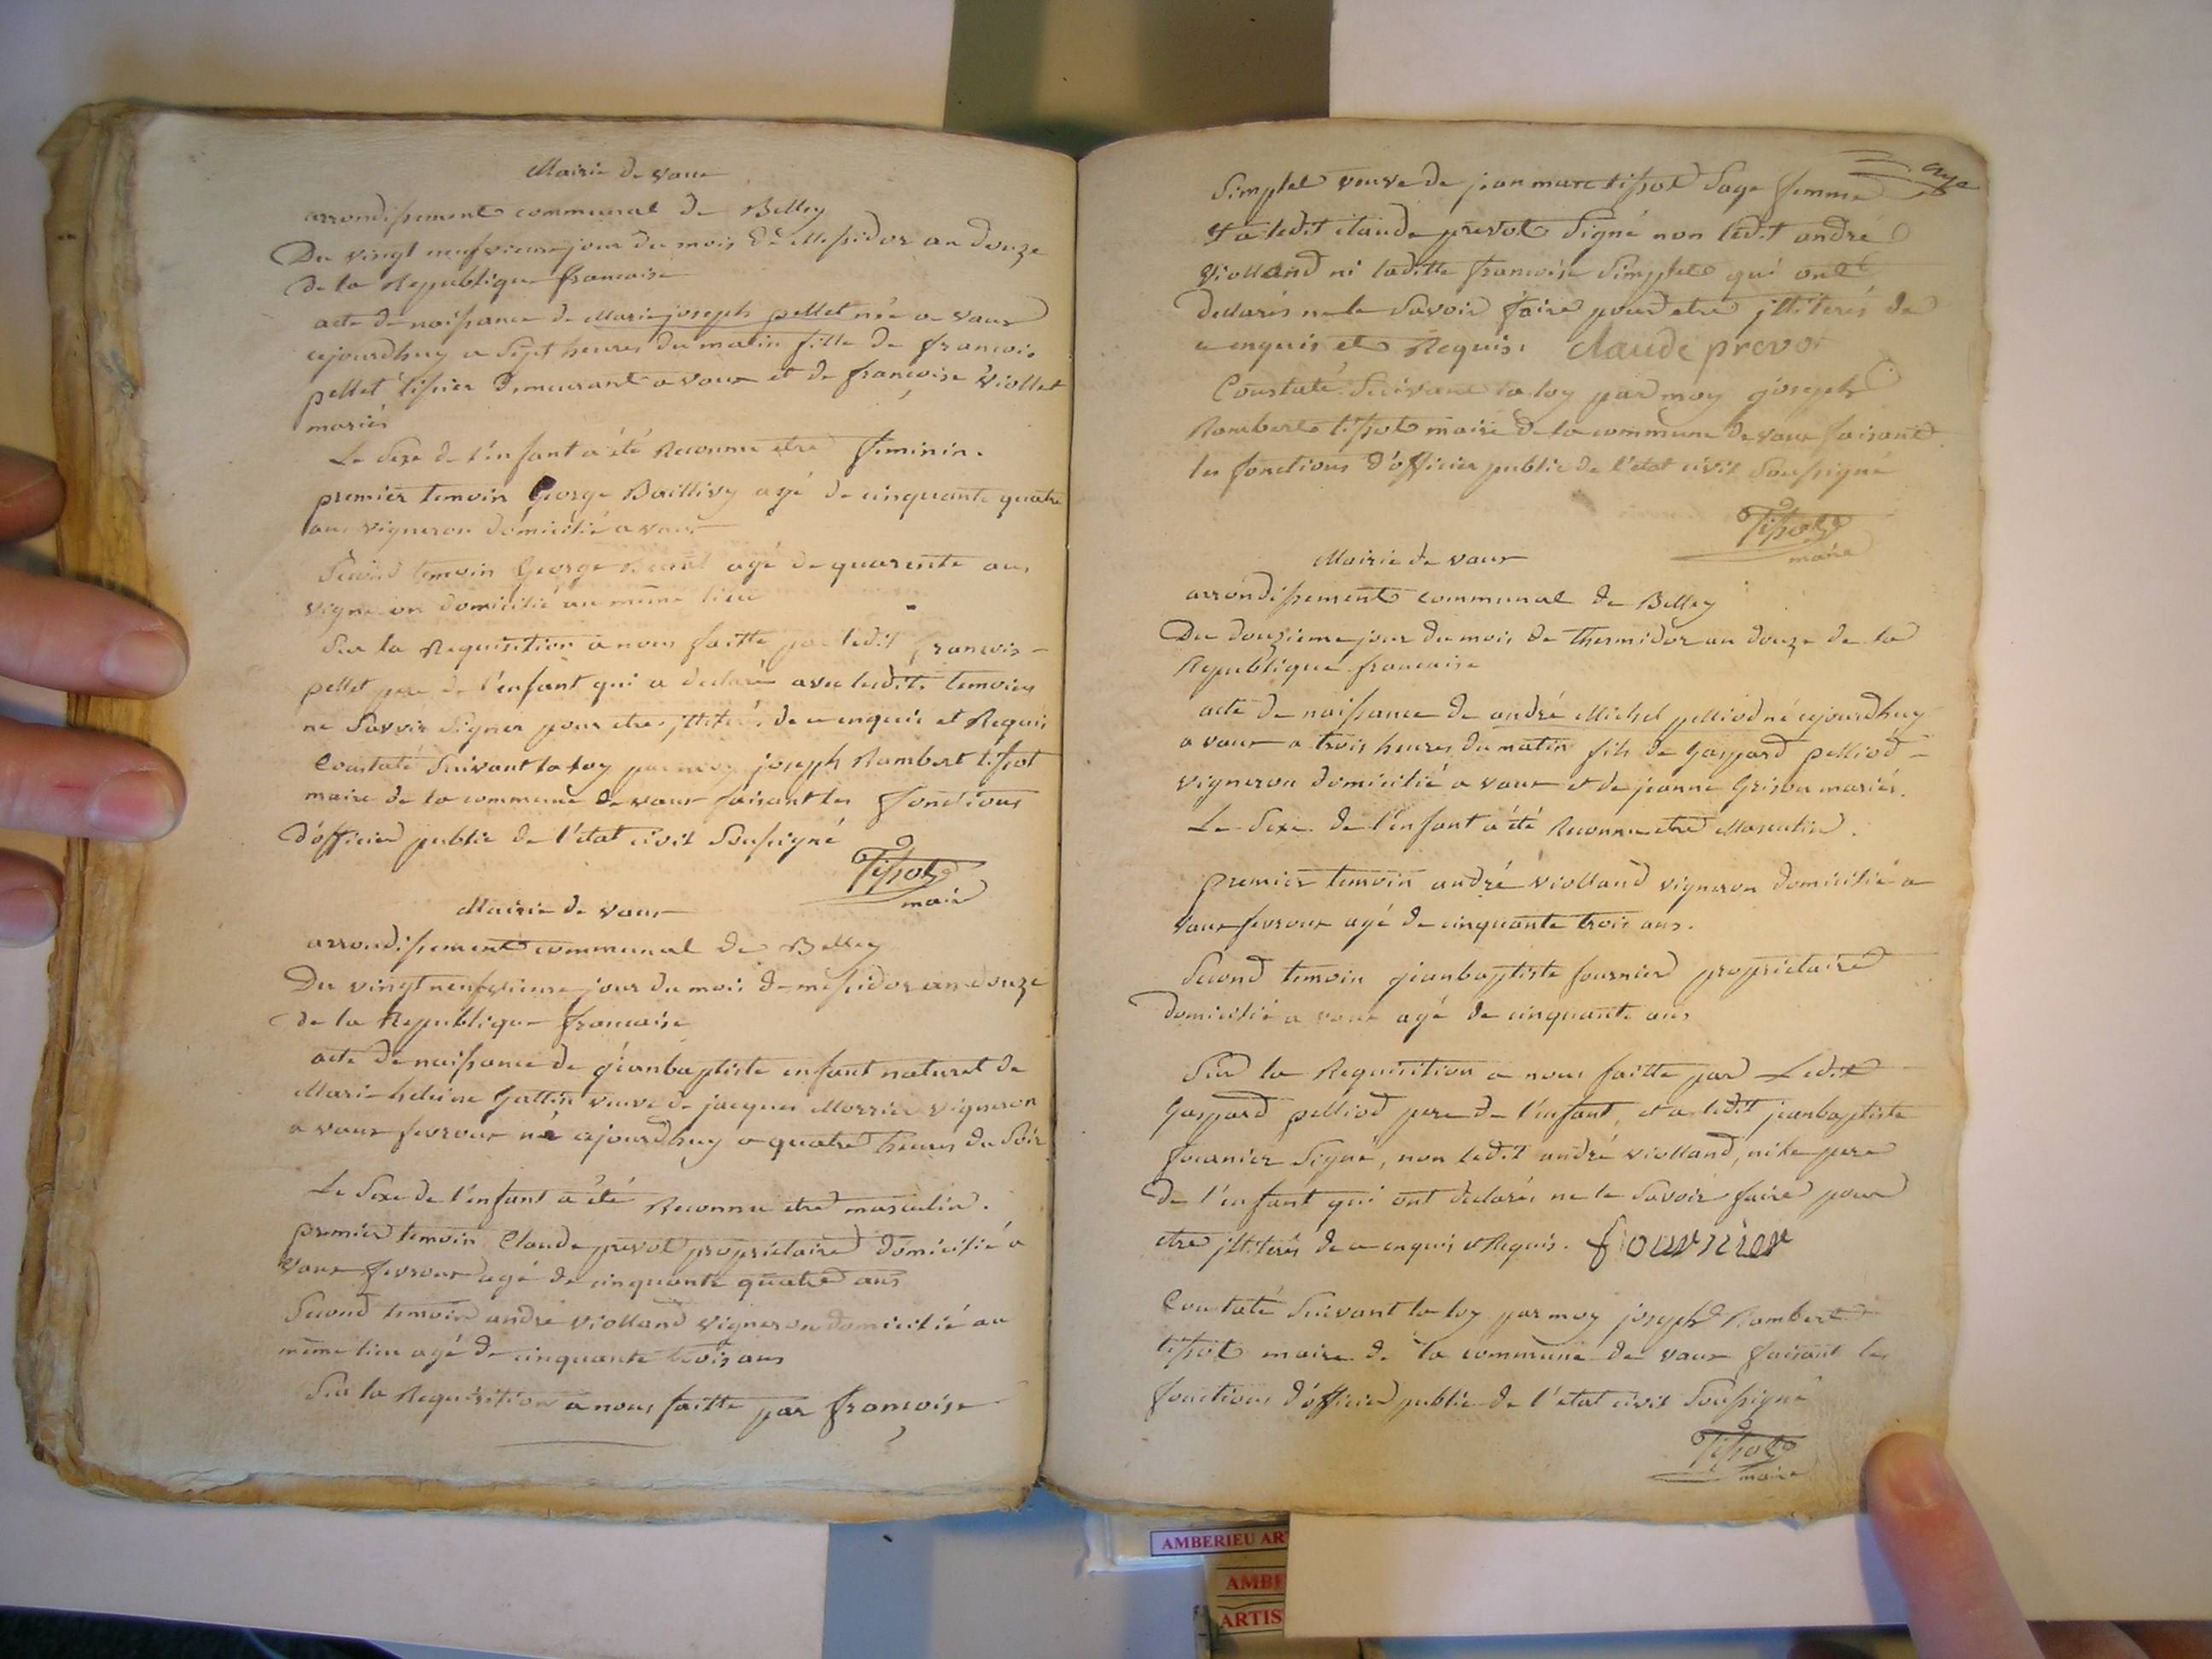 Mairie de vaux
arrondissement communal de Belley
Du vingt neufvieme jour du mois de Messidor an douze
de la Republique francaise
acte de naissance de Marie joseph pellet née a vaux
cejourdhuy a sept heures du matin fille de francois
pellet tissier demeurant a vaux et de françoise viollet
mariés
Le sexe de l'enfant a été Reconnu etre feminin.
premier temoin George Baillivy agé de cinquante quatre
ans vigneron domicilié a vaux
Second temoin George agé de quarente ans
vigneron domicilié au même lieu
Sur la Requisition a nous faitte par ledit francois
pellet pere de l'enfant qui a declaré avec lesdits temoins
ne savoir signer pour etre jlliterés de ce enquis et Requis
Constaté suivant la loy par moy joseph Rambert tissot
maire de la commune de vaux faisant les fonctions
d'officier public de l'état civil soussigné
Tissot
maire
Mairie de vaux
arrondissement communal de Belley
Du vingt neufvieme jour du mois de messidor an douze
de la Republique francaise
acte de naissance de jeanbaptiste enfant naturel de
Marie heleine Gallin veuve de jacques vigneron
a vaux fevroux né cejourdhuy a quatre heures du soir
Le sexe de l'enfant a été Reconnu etre masculin.
premier temoin Claude prevot proprietaire domicilié a
vaux fevroux agé de cinquante quatre ans
Second temoin andré violland vigneron domicilié au
même lieu agé de cinquante trois ans
Sur la Requisition a nous faitte par françoise
Simplet veuve de jean marc tissot sage femme
et a ledit claude prevot signé non ledit andré
violland ni laditte francoise Simplet qui ont
declarés ne le savoir faire pour etre jlliterés de
ce enquis et Requis. claude prevot
Constaté suivant la loy par moy joseph
Rambert tissot maire de la commune de vaux faisant
les fonctions d'officier public de l'etat civil soussigné
Tissot
maire
Mairie de vaux
arrondissement communal de Belley
Du douzieme jour du mois de thermidor an douze de la
Republique francaise
acte de naissance de andré Michel pelliod né cejourdhuy
a vaux a trois heures du matin fils de Gaspard pelliod
vigneron domicilié a vaux et de jeanne Grison mariés.
Le sexe de l'enfant a été Reconnu etre Masculin.
premier temoin andré violland vigneron domicilié a
vaux fevroux agé de cinquante trois ans.
Second temoin jeanbaptiste fournier proprietaire
domicilié a vaux agé de cinquante ans
Sur la Requisition a nous faitte par Ledit
Gaspard pelliod pere de l'enfant, et a ledit jeanbaptiste
fournier signé, non ledit andré violland, ni le pere
de l'enfant qui ont declarés ne le savoir faire pour
etre jlliterés de ce enquis et Requis. fournier
Constaté suivant la loy par moy joseph Rambert
tissot maire de la commune de vaux faisant les
fonctions d'officier public de l'etat civil soussigné
Tissot
maire
AMBERIEU AR
AMBE
ARTIS